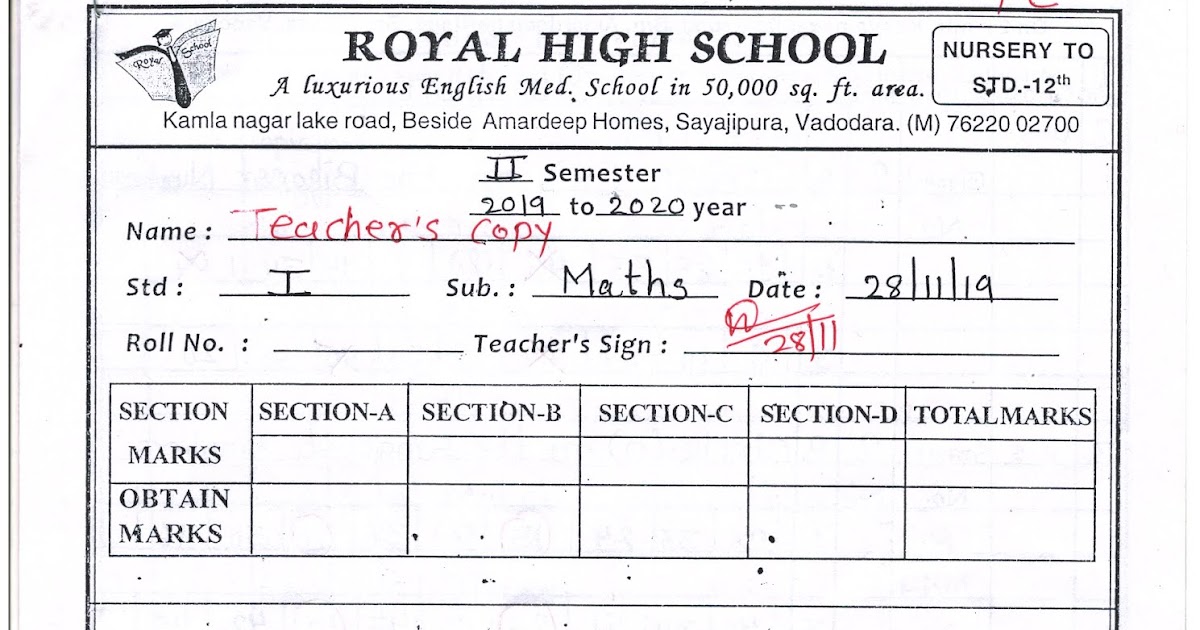 Royal School
ROYAL HIGH SCHOOL
A luxurious English Med. School in 50,000 sq. ft. area.
NURSERY TO
STD.-12th
Kamla nagar lake road, Beside Amardeep Homes, Sayajipura, Vadodara. (M) 76220 02700
II Semester
2019 to 2020 year
Name : Teacher's Copy
Std : I Sub. : Maths Date : 28/11/19
Roll No. : Teacher's Sign : 28/11
SECTION SECTION-A SECTION-B SECTION-C SECTION-D TOTAL MARKS
MARKS
OBTAIN
MARKS